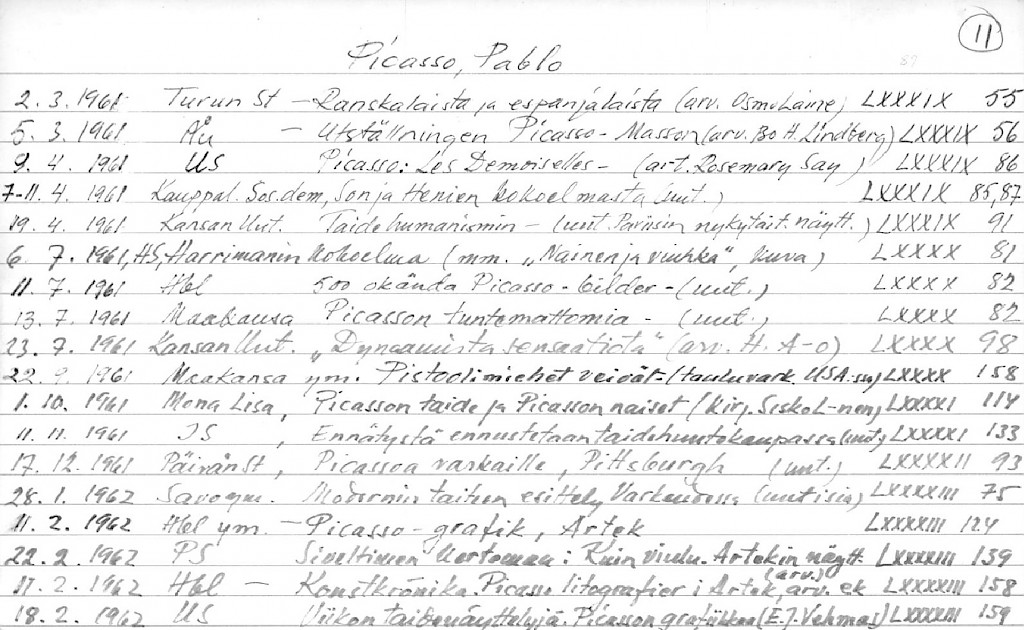 11
Picasso, Pablo
2. 3. 1961 Turun St — Ranskalaista ja espanjalaista (arv. Osmo Laine) LXXXIX 55
5. 3. 1961 ÅU — Utställningen Picasso - Masson (arv. Bo H. Lindberg) LXXXIX 56
9. 4. 1961 US Picasso: Les Demoiselles - (art. Rosemary Say) LXXXIX 86
7-11. 4. 1961 Kauppal. Sos.dem, Sonja Henien kokoelmasta (uut.) LXXXIX 85,87
19. 4. 1961 Kansan Uut. Taidehumanismin - (uut. Pariisin nykytait. näytt.) LXXXIX 91
6. 7. 1961, HS, Harrimanin kokoelma (mm. „Nainen ja viuhka", kuva) LXXXX 81
11. 7. 1961 Hbl 500 okända Picasso-bilder - (uut.) LXXXX 82
13. 7. 1961 Maakansa Picasson tuntemattomia - (uut.) LXXXX 82
23. 7. 1961 Kansan Uut. „Dynaamista sensaatiota" (arv. H. A-o) LXXXX 98
22. 9. 1961 Maakansa ym. Pistoolimiehet veivät - (tauluvark. USA:ssa) LXXXX 158
1. 10. 1961 Mona Lisa, Picasson taide ja Picasson naiset (kirj. Sisko L-nen) LXXXXI 114
11. 11. 1961 IS, Ennätystä ennustetaan taidehuutokaupassa (uut.) LXXXXI 133
17. 12. 1961 Päivän St, Picassoa varkaille, Pittsburgh (uut.) LXXXXII 93
28. 1. 1962 Savo ym. Modernin taiteen esittely Varkaudessa (uutisia) LXXXXIII 75
11. 2. 1962 Hbl ym. — Picasso-grafik, Artek LXXXXIII 124
22. 2. 1962 PS Siveltimen kertomaa: Kuin viulu. Artekin näytt. (arv.) LXXXXIII 139
17. 2. 1962 Hbl — Konstkrönika. Picasso litografier i Artek, arv. ek LXXXXIII 158
18. 2. 1962 US Viikon taidenäyttelyjä. Picasson grafiikkaa (E.J. Vehmas) LXXXXIII 159